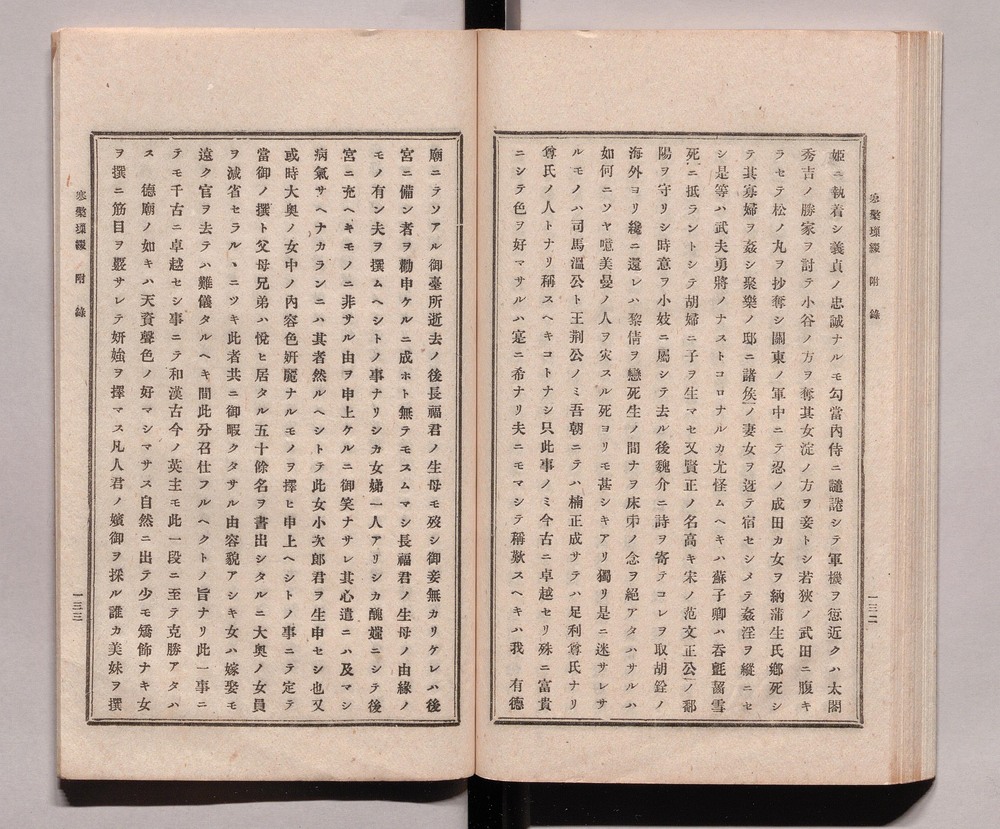 悲檗瑣綴 附錄
一三二
姬ニ執着シ義貞ノ忠誠ナルモ勾當內侍ニ譴綣シテ軍機ヲ愆近クハ太閤
秀吉ノ勝家ヲ討テ小谷ノ方ヲ奪其女淀ノ方ヲ妾トシ若狹ノ武田ニ腹キ
ラセテ松ノ丸ヲ抄奪シ關東ノ軍中ニテ忍ノ成田カ女ヲ納蒲生氏鄕死シ
テ其寡婦ヲ姦シ聚樂ノ邸ニ諸侯ノ妻女ヲ迓テ宿セシメテ姦淫ヲ縱ニセ
シ是等ハ武夫勇將ノナストコロナルカ尤怪ムヘキハ蘇子卿ハ吞氈齧雪
死ニ抵ラントシテ胡婦ニ子ヲ生マセ又賢正ノ名高キ宋ノ范文正公ノ鄱
陽ヲ守リシ時意ヲ小妓ニ屬シテ去ル後魏介ニ詩ヲ寄テコレヲ取胡銓ノ
海外ヨリ纔ニ還レハ黎倩ヲ戀死生ノ間ナヲ床笫ノ念ヲ絕アタハサルハ
如何ニソヤ噫美曼ノ人ヲ灾スル死ヨリモ甚シキアリ獨リ是ニ迷サレサ
ルモノハ司馬溫公ト王荆公ノミ吾朝ニテハ楠正成サテハ足利尊氏ナリ
尊氏ノ人トナリ稱スヘキコトナシ只此事ノミ今古ニ卓越セリ殊ニ富貴
ニシテ色ヲ好マサルハ寔ニ希ナリ夫ニモマシテ稱歎スヘキハ我 有德
廟ニテソアル御臺所逝去ノ後長福君ノ生母モ歿シ御妾無カリケレハ後
宮ニ備シ者ヲ勸申ケルニ成ホト無テモスムマシ長福君ノ生母ノ由緣ノ
モノ有ン夫ヲ撰ムヘシトノ事ナリシカ女娣一人アリシカ醜孀ニシテ後
宮ニ充ヘキモノニ非サル由ヲ申上ケルニ御笑ナサレ其心遣ニハ及マシ
病氣サヘナカランニハ其者然ルヘシトテ此女小次郎君ヲ生申セシ也又
或時大奧ノ女中ノ內容色姸麗ナルモノヲ擇ヒ申上ヘシトノ事ニテ定テ
當御ノ撰ト父母兄弟ハ悅ヒ居タル五十餘名ヲ書出シタルニ大奧ノ女員
ヲ減省セラルヽニツキ此者共ニ御暇クタサル由容貌アシキ女ハ嫁娶モ
遠ク官ヲ去テハ難儀タルヘキ間此分召仕フルヘクトノ旨ナリ此一事ニ
テモ千古ニ卓越セシ事ニテ和漢古今ノ英主モ此一段ニ至テ克勝アタハ
ス 德廟ノ如キハ天資聲色ノ好マシマサス自然ニ出テ少モ矯飾ナキ女
ヲ撰ニ筋目ヲ嚴サレテ姸媸ヲ擇マス凡人君ノ嬪御ヲ採ル誰カ美姝ヲ撰
附錄
一三三